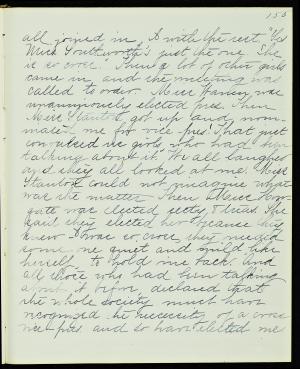 155
all joined in, I with the rest. "Yes
Miss Southworth's just the one. She
is so cross." Then a lot of other girls
came in, and the meeting was
called to order. Miss was
unanimously elected pres. Then
Miss Stanton got up and nom-
inated me for vice-pres. That just
convulsed the girls, who had been
talking about it. We all laughed
and they all looked at me. Miss
Stanton could not imagine what
was the matter. Then Miss
gate was elected secty & treas. She
said they elected her because they
knew I was so cross, they needed
some one quiet and mild like
herself to hold me back. And
all those who had been talking
about it before, declared that
the whole society must have
recognized the necessity of a cross
vice pres. and so have elected me